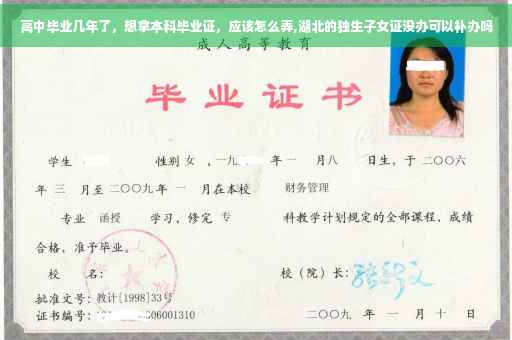 高中毕业几年了，想拿本科毕业证，应该怎么弄,湖北的独生子女证没办可以补办吗
成人高等教育
毕业证书
学生 性别 女 ，一九 年 一 月 八 日生，于 二〇〇六
年 三 月至 二〇〇九 年 一 月在本校 财务管理
专业 函授 学习，修完 专 科教学计划规定的全部课程，成绩
合格，准予毕业。
校 名： 校（院）长：
批准文号：教计[1998]33号
证书编号： 06001310 二〇〇九 年 一 月 十 日